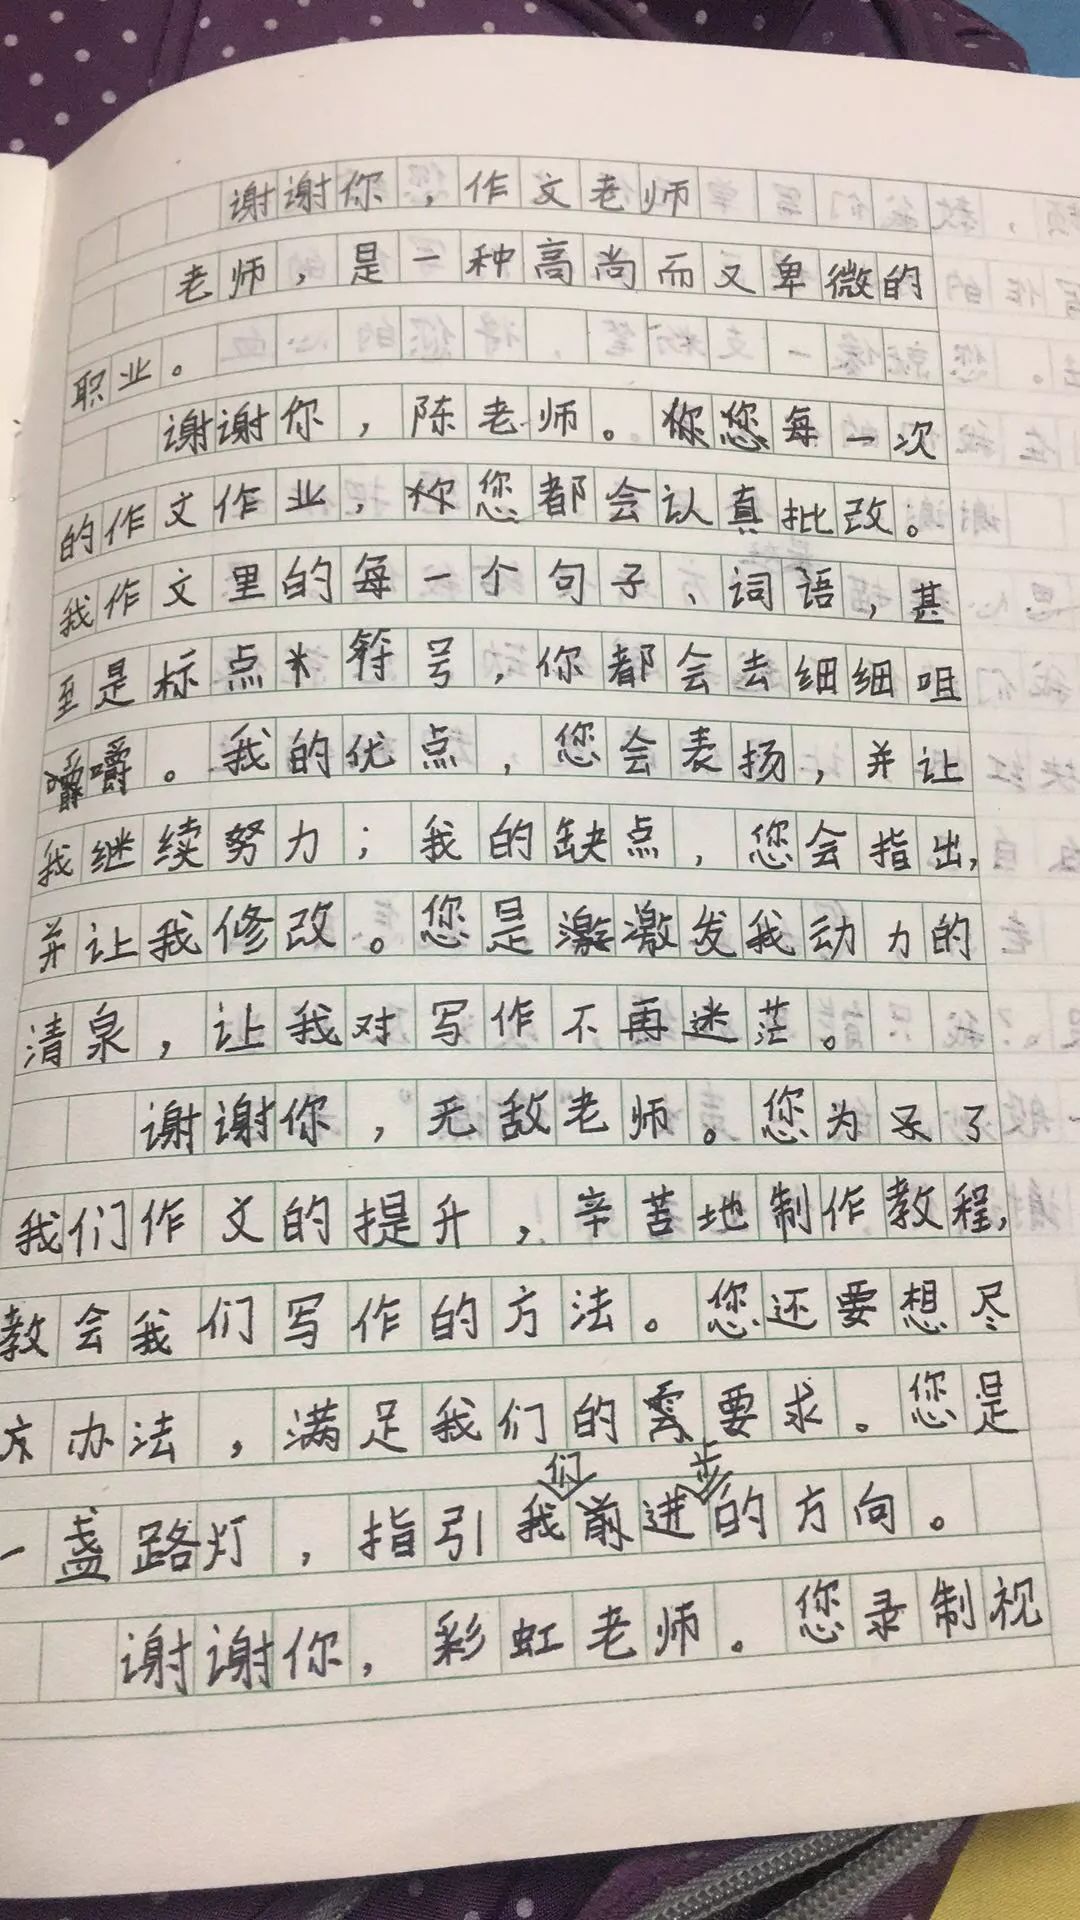 谢谢你，作文老师
老师，是一种高尚而又卑微的
职业。
谢谢你，陈老师。您每一次
的作文作业，您都会认真批改。
我作文里的每一个句子、词语，甚
至是标点符号，你都会去细细咀
嚼。我的优点，您会表扬，并让
我继续努力；我的缺点，您会指出，
并让我修改。您是激发我动力的
清泉，让我对写作不再迷茫。
谢谢你，无敌老师。您为了
我们作文的提升，辛苦地制作教程，
教会我们写作的方法。您还要想尽
方办法，满足我们的需要求。您是
一盏路灯，指引我们前进步的方向。
谢谢你，彩虹老师。您录制视